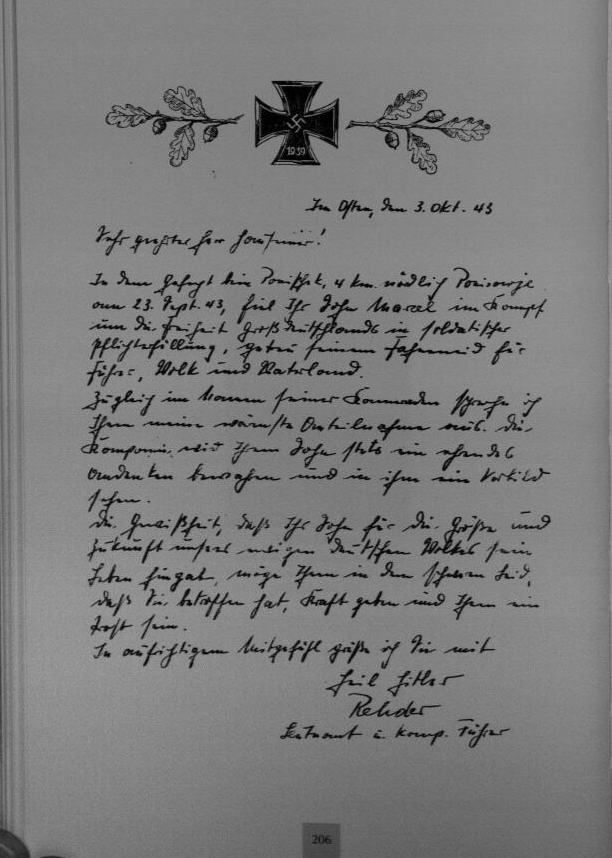 1939
Im Osten, den 3. Okt. 43
Sehr geehrter Herr !
In dem Gefecht bei, 4 km. nördlich
am 23. Sept. 43, fiel Ihr Sohn Marcel im Kampf
um die Freiheit Großdeutschlands in soldatischer
Pflichterfüllung, getreu seinem Fahneneid für
Führer, Volk und Vaterland.
Zugleich im Namen seiner Kameraden spreche ich
Ihnen meine wärmste Anteilnahme aus. Die
Kompanie wird Ihrem Sohn stets ein ehrendes
Andenken bewahren und in ihm ein Vorbild
sehen.
Die Gewißheit, daß Ihr Sohn für die Größe und
Zukunft unseres ewigen deutschen Volkes sein
Leben hingab, möge Ihnen in dem schweren Leid,
daß Sie betroffen hat, Kraft geben und Ihnen ein
Trost sein.
In aufrichtigem Mitgefühl grüße ich Sie mit
Heil Hitler
Rehder
Leutnant u. Komp. Führer
206